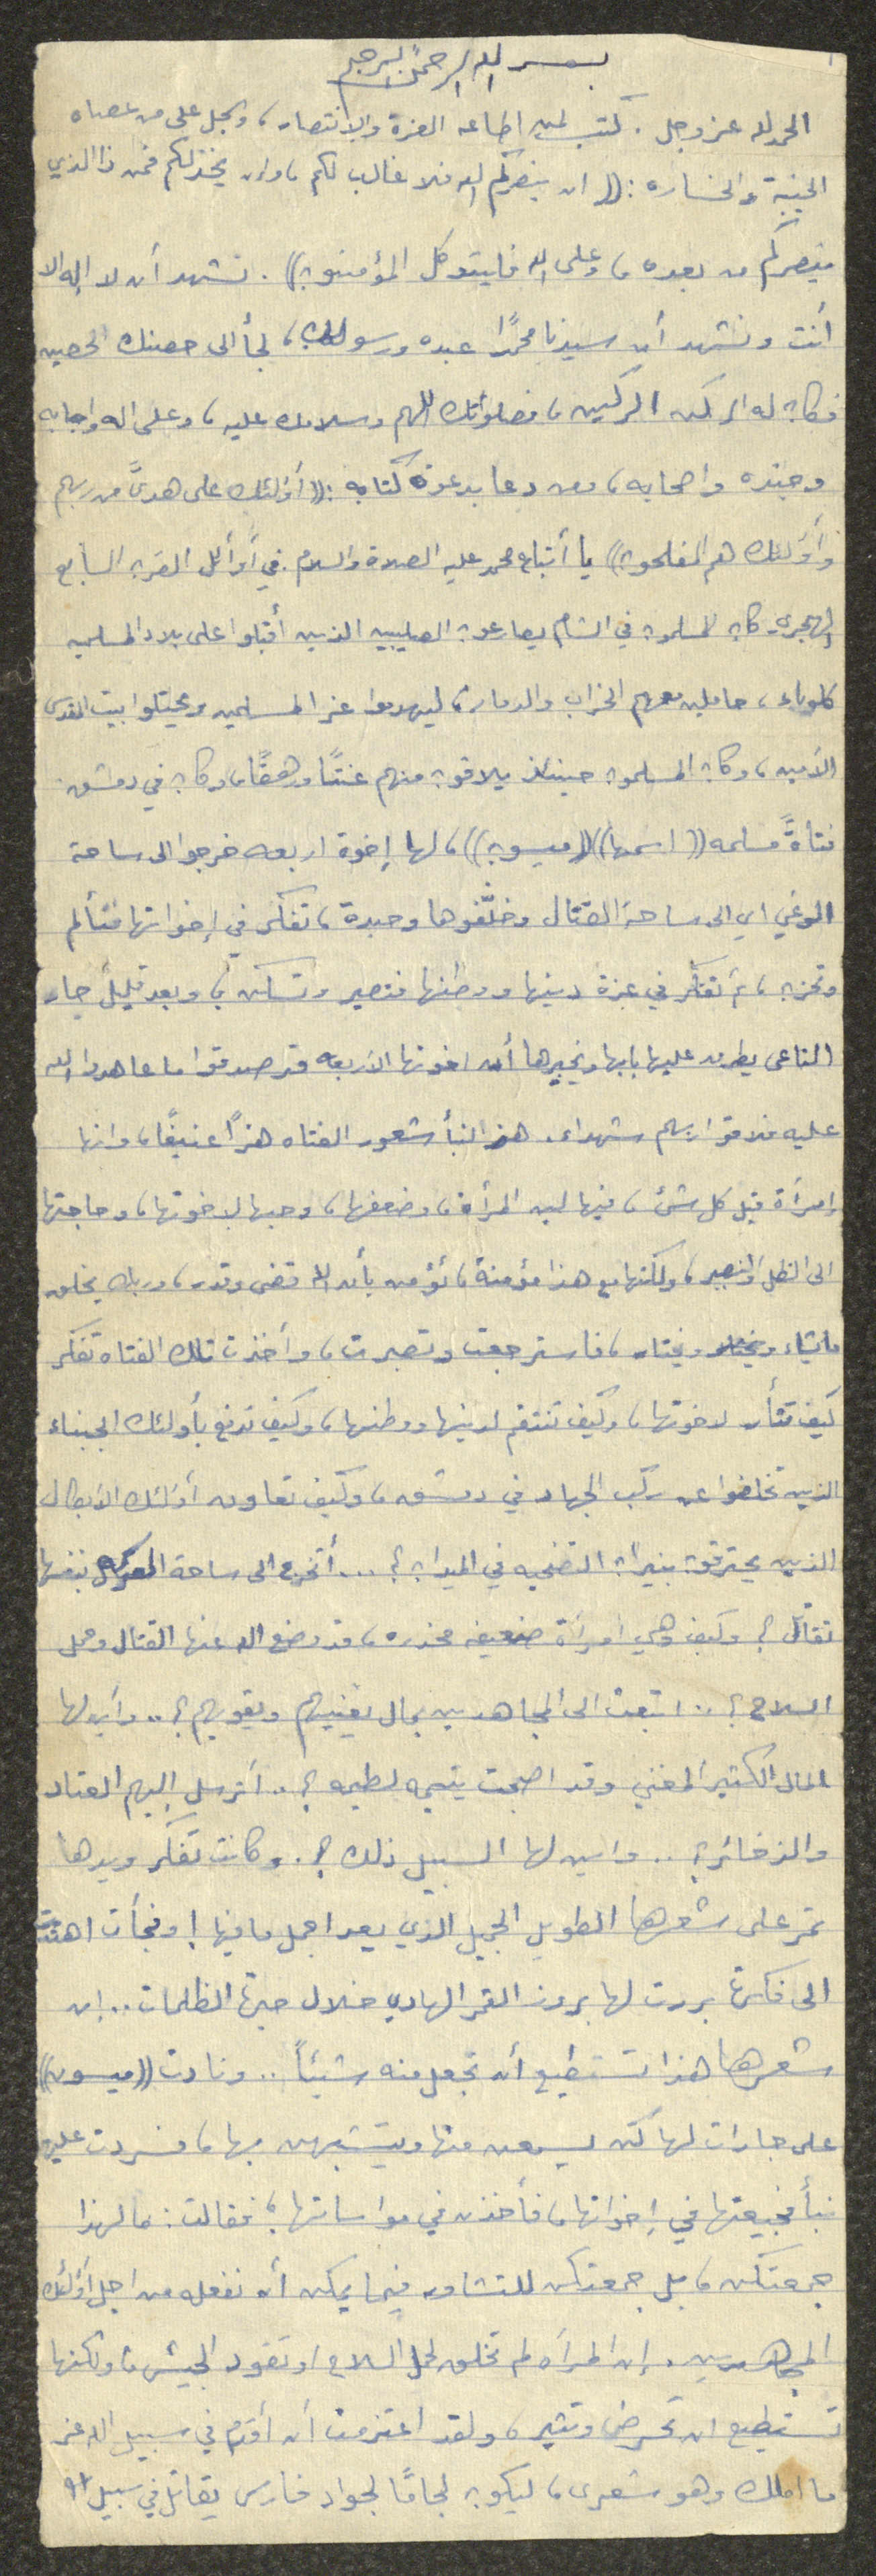 بسم الله الرحمن الرحيم
الحمد لله عز وجل . كتب لمن اطاعه العزة والانتصار، وسجل على من عصاه
الخيبة والخساره :(( ان ينصركم الله فلا غالب لكم، وان يخذلكم فمن ذا الذي
ينصركم من بعده، وعلى الله فليتوكل المؤمنون)). نشهد أن لا اله الا
أنت ونشهد أن سيدنا محمدًا عبده ورسولك، لجأ الى حصنك الحصين
فكان له الركن الركين، فصلواتك اللهم وسلامك عليه، وعلى اله واحبابه
وجنده واصحابه، ومن دعا بدعوة كتابه :(( أولئك على هدىً من ربهم
وأولئك هم المفلحون)) يا أتباع محمد عليه الصلاة والسلام . في أوائل القرن السابع
الهجري كان المسلمون في الشام يصارعون الصليبين الذين أقبلوا على بلاد المسلمين
كالوباء، حاملين معهم الخراب والدمار، ليهدموا عز المسلمين ويحتلوا بيت المقدس
الأمين، وكان المسلمون حينئذ يلاقون منهم عنتًا ورهقًا، وكان في دمشق
فتاةً مسلمه ((اسمها)) ((ميسون))، لها إخوة اربعه خرجوا الى ساحة
الوغي اي الى ساحة القتال وخلّفوها وحيدة، تفكر في إخوانها فتألم
وتحزن، ثم تفكر في عزة دينها ووطنها فتصبر وتسكن، وبعد قليل جاء
الناعى يطرق عليها بابها ويخبرها أن اخوتها الاربعه قد صدقوا ما عاهدوا الله
عليه فلاقوا ربهم شهداء. هز النبأ شعور الفتاه هزًا عنيفًا، وانها
إمرأة قبل كل شئ، فيها لين المرأة، وضعفها، وحبها لاخوتها، وحاجتها
الى الظل والنصير، ولكنها مع هذا مؤمنة، تؤمن بأن الله قضى وقدر، وربك يخلق
مايشاء ويختار، فاسترجعت وتصبرت، وأخذت تلك الفتاه تفكر
كيف تثأر لاخوتها، وكيف تنتقم لدينها ووطنها، وكيف تدفع بأولئك الجبناء
الذين تخلفوا عن ركب الجهاد في دمشق، وكيف تعاون أولئك الأبطال
الذين يحترقون بنيران التضحيه في الميدان؟ ... أتخرج الى ساحة المعركة بنفسها
تقاتل؟ وكيف وهي امرأة ضعيفه مخدره، قد وضع الله عنها القتال وحمل
السلاح؟ .. اتبعث الى المجاهدين بمال يغنيهم ويقويهم؟ .. وأين لها
المال الكثير المغني وقد اصبحت يتيمه لطيمه؟ . أترسل إليهم العتاد
والذخائر؟ .. واين لها السبيل ذلك؟ . وكانت تفكر ويدها
تمر على شعرها الطويل الجميل الذي يعد اجمل مافيها ! وفجأت اهتدت
الى فكرة بررت لها بروز القمر الهادي خلال حيرة الظلمات .. إن
شعرها هذا تستطيع أن تجعل منه شيئاً .. ونادت ((ميسون))
على جارات لها كن يسمعن منها ويتشبهن بها، فسردت عليهن
نبأ فجيعتها في إخوانها، فأخذن في مواساتها، فقالت : ما لهذا
جمعتكن، بل جمعتكن للتشاور فيما يمكن أن نفعله من اجل أولئك
المجاهدين . إن المرأه لم تخلق لحمل السلاح او تقود الجيش، ولكنها
تستطيع ان تحرض وتثير، ولقد اعتزمت أن أقدم في سبيل الله عز
ما املك وهو شعرى، ليكون لجامًا لجواد فارس يقاتل في سبيل الله